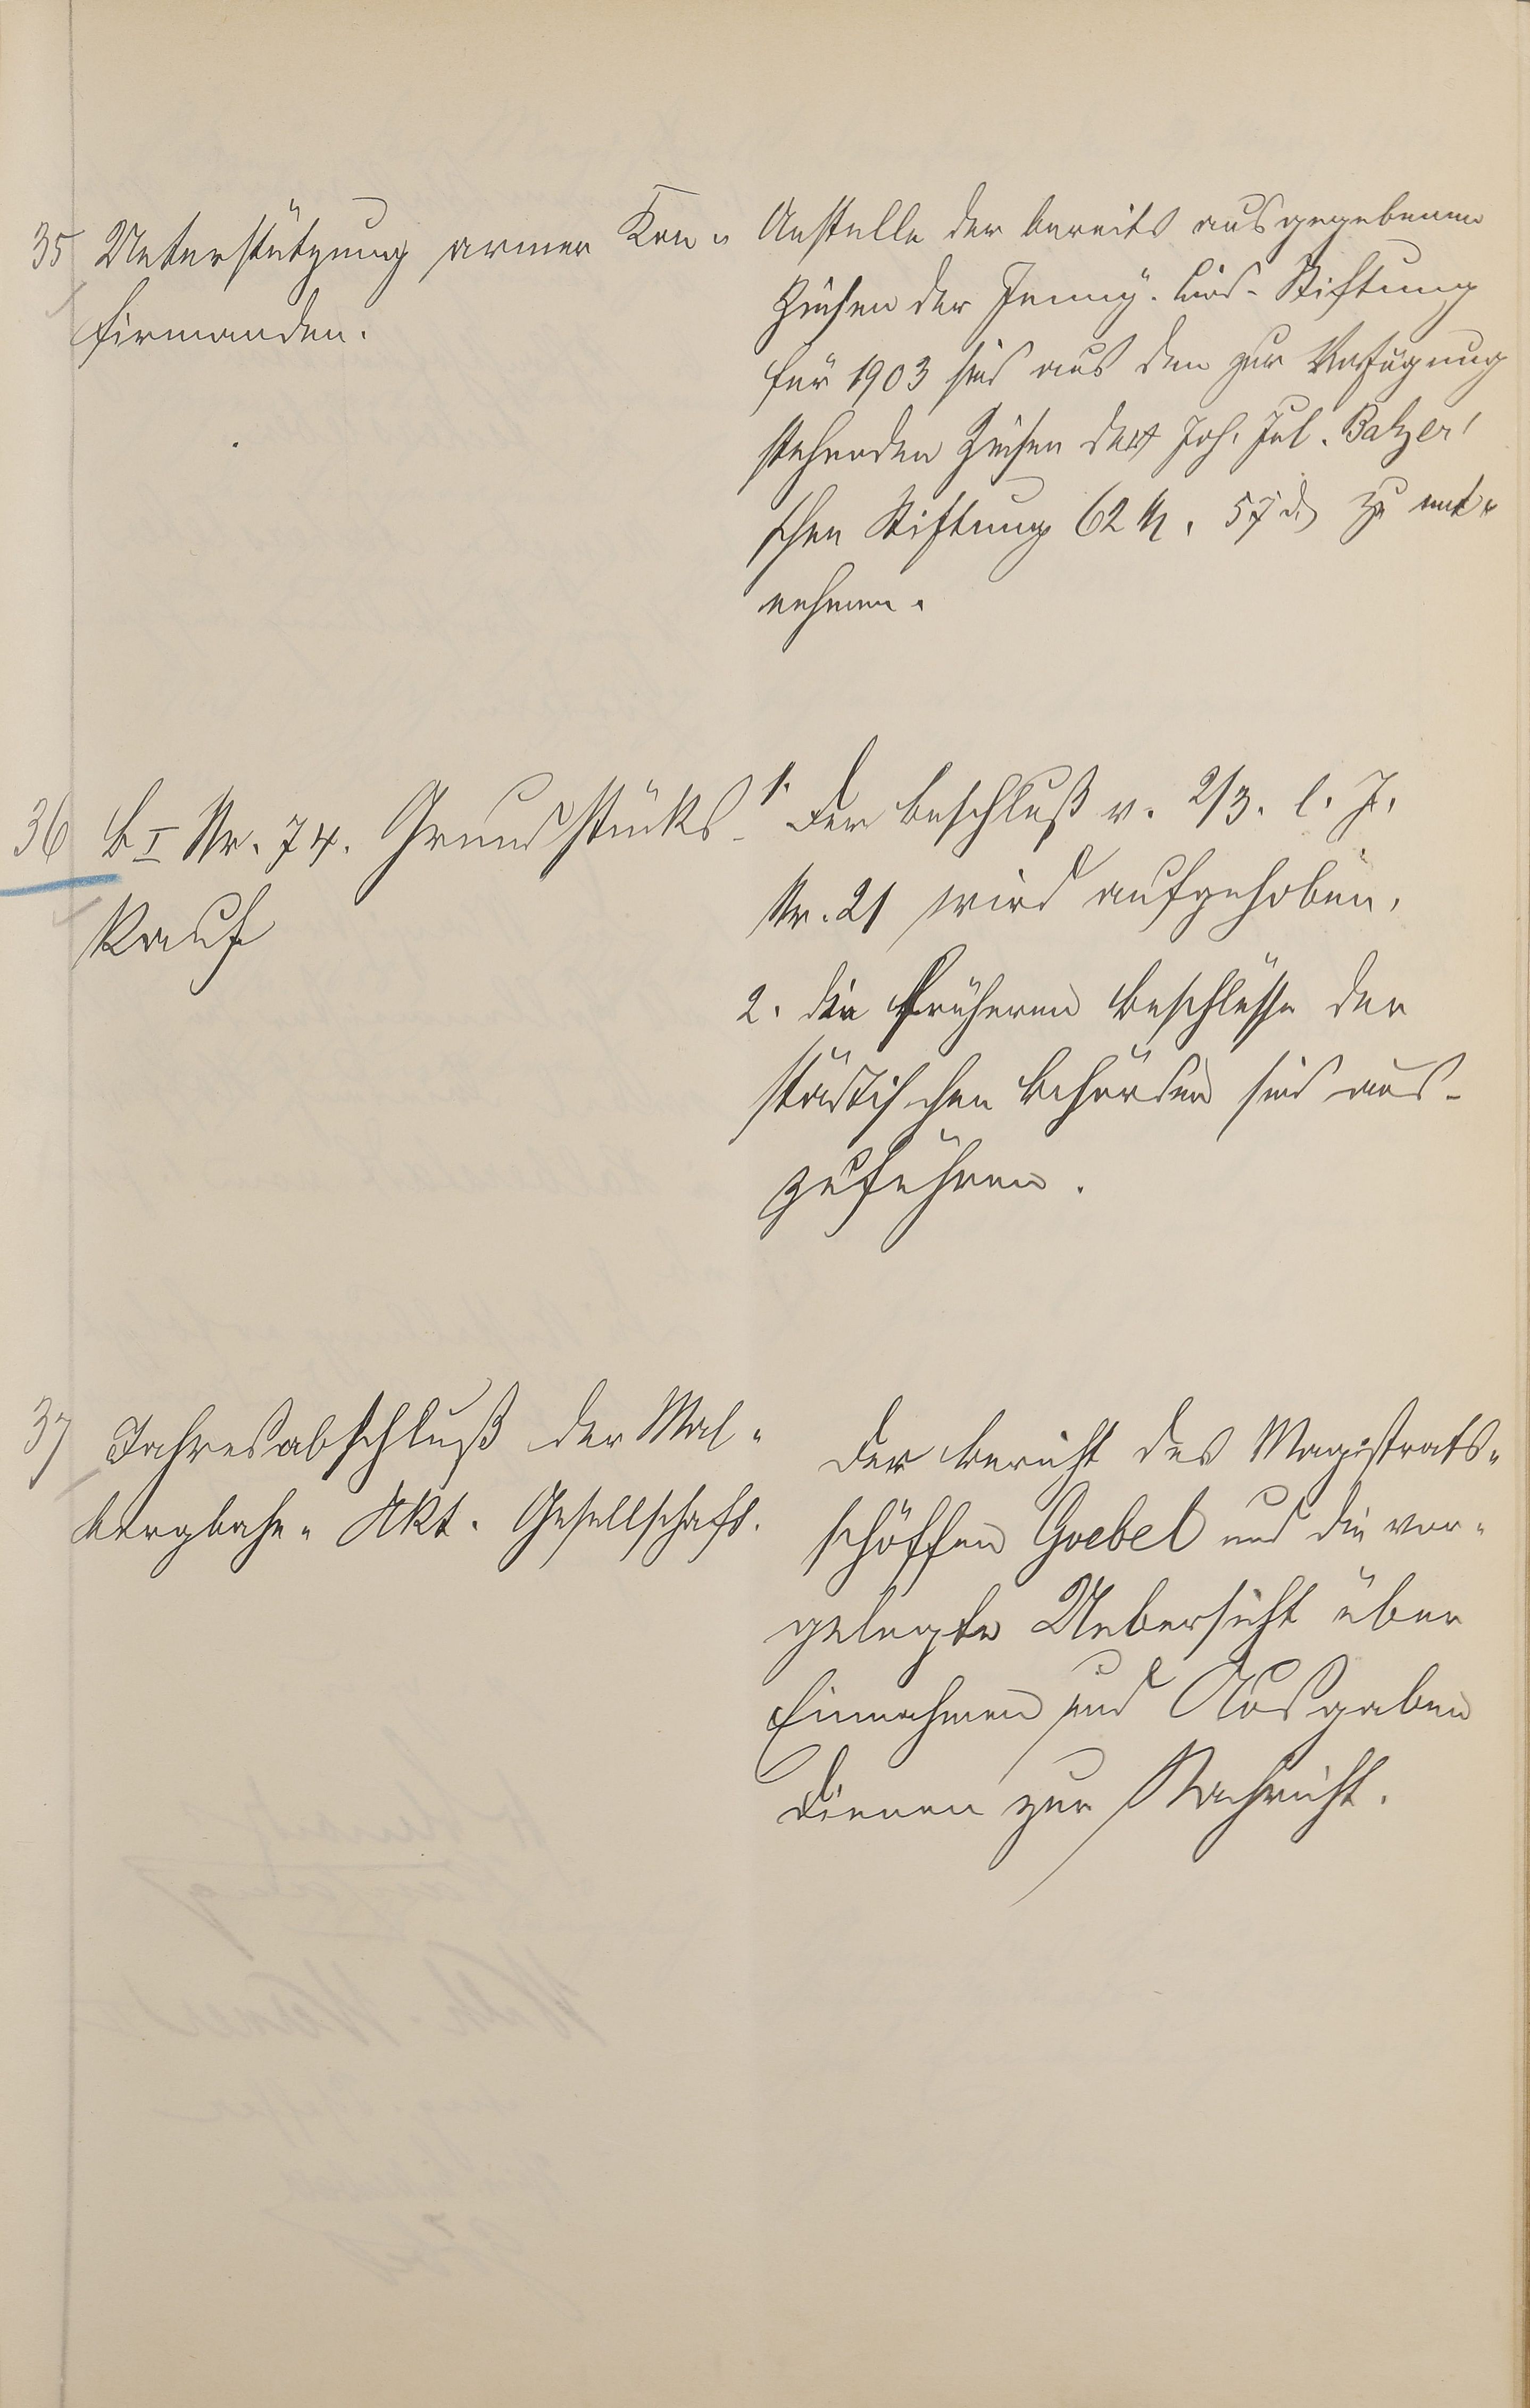 35 Unterstützung armer Kon-
firmanden.
Anstelle der bereits ausgegebenen
Zinsen der Jenny-Lind-Stiftung
für 1903 sind aus den zur Verfügung
stehenden Zinsen der Joh. Jul. Balzer'
schen Stiftung 62 M. 57 d. zu ent-
nehmen.
36 B I Nr. 74. Grundstücks-
kauf
1. Der Beschluß v. 2/3. l. J.
Nr. 21 wird aufgehoben.
2. die früheren Beschlüsse der
städtischen Behörden sind aus-
zuführen.
37 Jahresabschluß der Mal-
bergbahn-Akt. Gesellschaft.
Der Bericht des Magistrats-
schöffen Goebel und die vor-
gelegte Uebersicht über
Einnahmen und Ausgaben
dienen zur Nachricht.